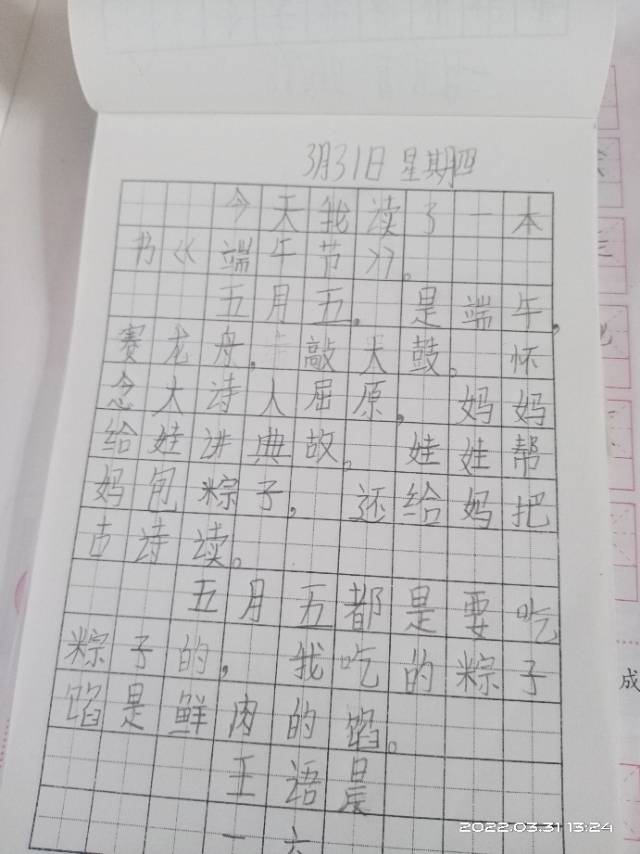 3月31日 星期四
今天我读了一本
书《端午节》。
五月五,是端午,
赛龙舟,敲大鼓。怀
念大诗人屈原,妈妈
给娃讲典故。娃娃帮
妈包粽子,还给妈把
古诗读。
五月五都是要吃
粽子的,我吃的粽子
馅是鲜肉的馅。
王语晨
一六
成
2022.03.31 13:24